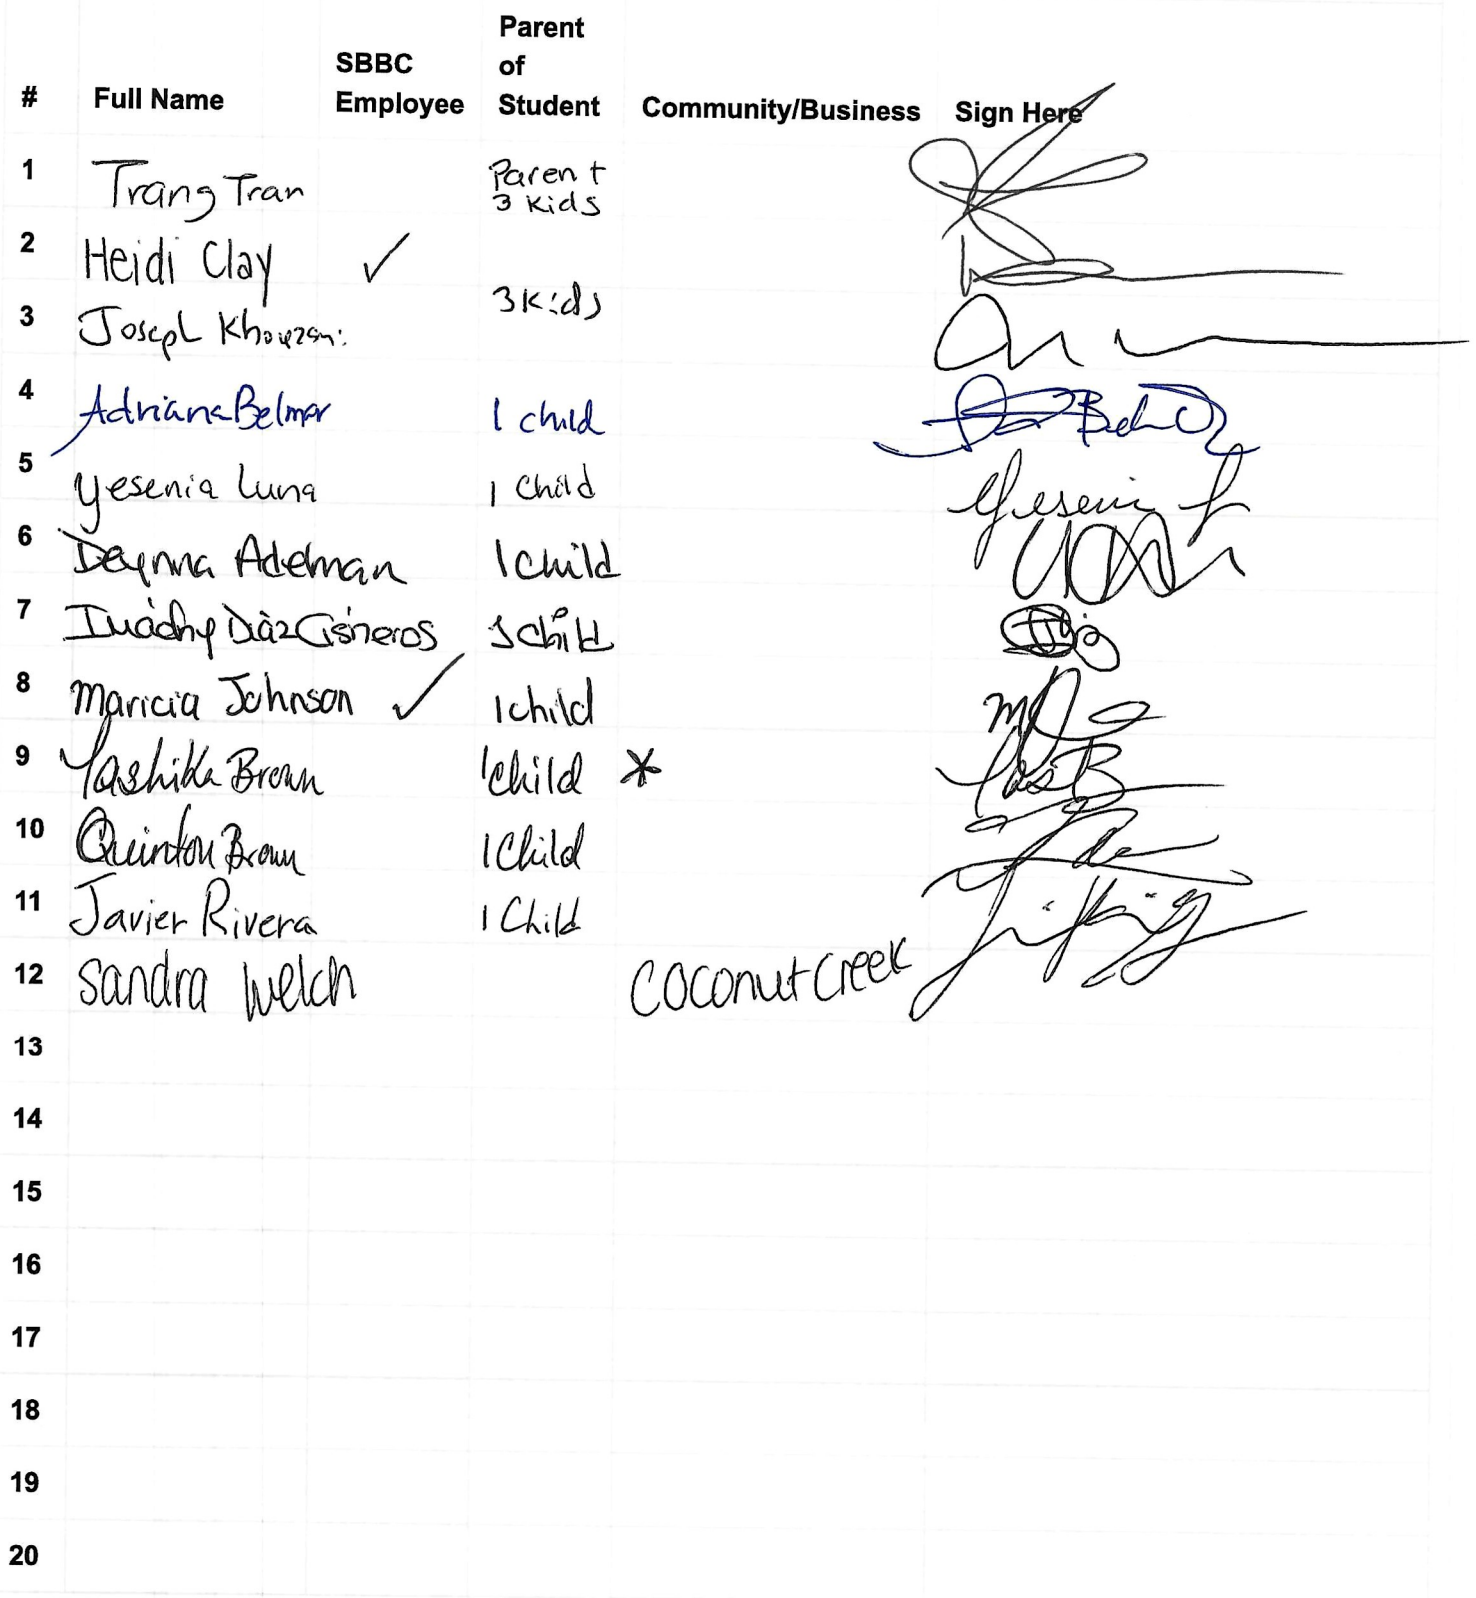 Parent
SBBC of
# Full Name Employee Student Community/Business Sign Here
1 Trang Tran Parent
3 Kids
2 Heidi Clay ✓
3 Joseph 3 Kids
4 Adriana Belmar 1 child
5 Yesenia Luna 1 Child
6 Deynna Adelman 1 Child
7 Díaz Cisneros 1 child
8 Maricia Johnson ✓ 1 child
9 Yashika Brown 1 child *
10 Quinton Brown 1 Child
11 Javier Rivera 1 Child
12 Sandra Welch Coconut Creek
13
14
15
16
17
18
19
20